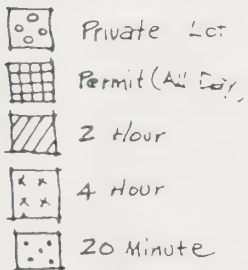 Private Lot
Permit (All Day)
2 Hour
4 Hour
20 Minute